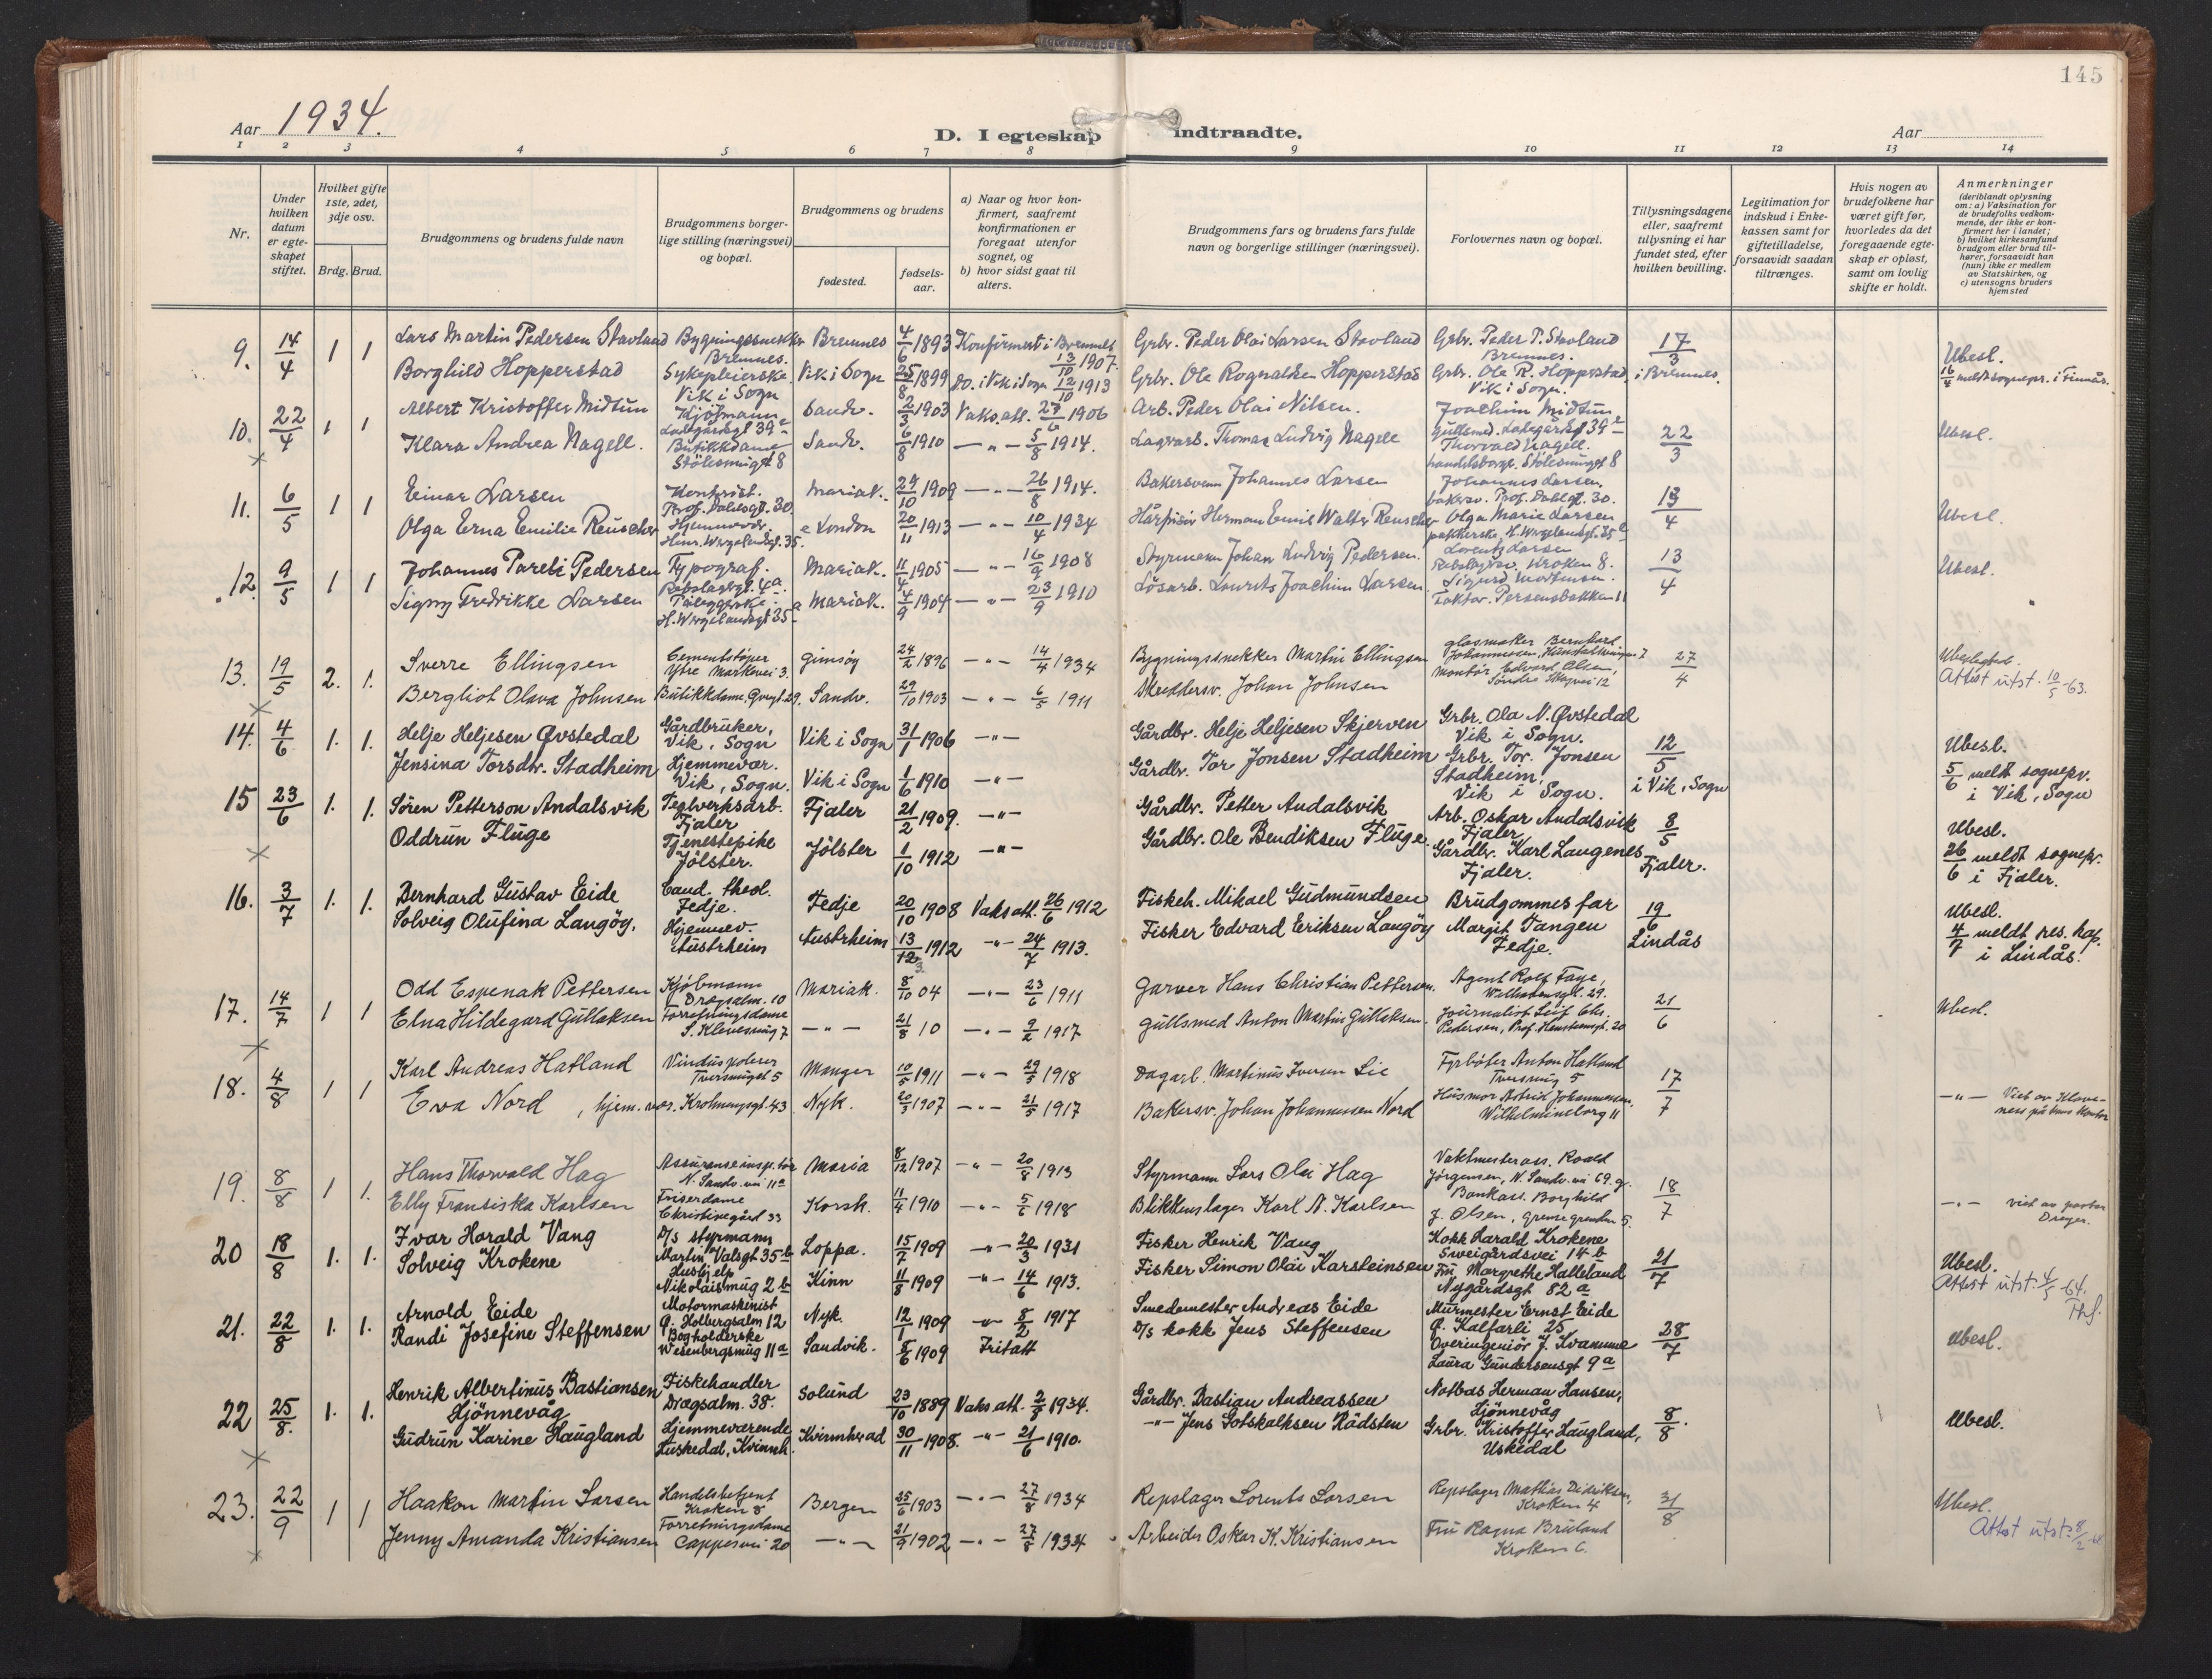 145
Aar 1934.
D. I egteskap indtraadte.
Aar
1 2 3 4 5 6 7 8 9 10 11 12 13 14
Nr.
Under hvilken datum er egteskapet stiftet.
Hvilket gifte 1ste, 2det, 3dje osv.
Brdg. Brud.
Brudgommens og brudens fulde navn
Brudgommens borgerlige stilling (næringsvei) og bopæl.
Brudgommens og brudens
fødested.
fødselsaar.
a) Naar og hvor konfirmert, saafremt konfirmationen er foregaat utenfor sognet, og
b) hvor sidst gaat til alters.
Brudgommens fars og brudens fars fulde navn og borgerlige stillinger (næringsvei).
Forlovernes navn og bopæl.
Tillysningsdagene eller, saafremt tillysning ei har fundet sted, efter hvilken bevilling.
Legitimation for indskud i Enkekassen samt for giftetilladelse, forsaavidt saadan tiltrænges.
Hvis nogen av brudefolkene har været gift før, hvorledes da det foregaaende egteskap er opløst, samt om lovlig skifte er holdt.
Anmerkninger (deriblandt oplysning om: a) Vaksination for de brudefolks vedkommende, der ikke er konfirmert her i landet; b) hvilket kirkesamfund brudgom eller brud tilhører, forsaavidt han (hun) ikke er medlem av Statskirken, og c) utensogns bruders hjemsted
9. 14/4 1 1 Lars Martin Pedersen Stavland Bygningssnekker Bremnes. Bremnes 4/6 1893 Konfirmert i Bremnes 13/10 1907. Grbr. Peder Olai Larsen Stavland Grbr. Peder P. Stavland Bremnes. 17/3 i Bremnes. Ubesl.
Borghild Hopperstad Sykepleierske Vik i Sogn Vik i Sogn 25/8 1899 Do. i Vik i Sogn 12/10 1913 Grbr. Ole Rognaldsen Hopperstad Grbr. Ole R. Hopperstad Vik i Sogn. 16/4 meldt sognepr. i Finnås.
10. 22/4 1 1 Albert Kristoffer Midtun Kjøpmann Ladegårdsgt 39 Sandv. 2/3 1903 Vaks. att. 27/6 1906 Arb. Peder Olai Nilsen. Joachim Midtun Gullsmed. Ladegårdsgt 39 22/3 Ubesl.
Klara Andrea Nagell. Butikkdame Stölesmugt 8 Sandv. 6/8 1910 — " — 5/8 1914. Lagerarb. Thomas Ludvig Nagell Thorvald Nagell. handelsborger. Stölesmuget 8
11. 6/5 1 1 Einar Larsen Kontorist. Prof. Dahlsgt. 30 Mariak. 29/10 1909 — " — 26/8 1914. Bakersvenn Johannes Larsen Johannes Larsen. bakersv. Prof. Dahlsgt. 30. 13/4 Ubesl.
Olga Erna Emilie Reuscher Hjemmevær. Henr. Wergelandsgt. 35. London 20/11 1913 — " — 10/4 1934 Hårfrisör Herman Emil Walter Reuscher Olga Marie Larsen pakkerske, H. Wergelandsgt. 35
12. 9/5 1 1 Johannes Pareli Pedersen Typograf. Mariak. 11/4 1905 — " — 16/9 1908 Styrmann Johan Ludvig Pedersen. Lorentz Larsen Kroken 8. 13/4 Ubesl.
Signy Fredrikke Larsen H. Wergelandsgt 35 Mariak. 4/9 1904 — " — 23/9 1910 Lösarb. Laurits Joachim Larsen Sigurd Mortensen. Faktor. Persenbakken 11
13. 19/5 2. 1. Sverre Ellingsen Cementstøper Ytre Markevei 3. Gimsøy 24/2 1896 — " — 14/4 1934 Bygningssnekker Martin Ellingsen Glasmaker Bernhard Johannesen, 27/4 Ubeslægted.
Bergliot Olava Johnsen Butikkdame, Sandv. 29/10 1903 — " — 6/5 1911 Skreddersv. Johan Johnsen Montør Edvard Olsen, Søndre Skogvei 12 Attest utst. 10/5-63.
14. 4/6 1. 1. Helje Heljesen Øvstedal Gårdbruker, Vik, Sogn Vik i Sogn 31/1 1906 — " — Gårdbr. Helje Heljesen Skjerven Grbr. Ola N. Øvstedal Vik i Sogn. 12/5 i Vik, Sogn Ubesl.
Jensina Torsdtr. Stadheim Hjemmevær. Vik, Sogn. Vik i Sogn 1/6 1910 — " — Gårdbr. Tor Jonsen Stadheim Grbr. Tor Jonsen Stadheim, Vik i Sogn. 5/6 meldt sognepr. i Vik, Sogn
15 23/6 1. 1. Søren Petterson Andalsvik Teglverksarb. Fjaler Fjaler 21/2 1909. — " — Gårdbr. Petter Andalsvik Arb. Oskar Andalsvik Fjaler 8/5 Fjaler. Ubesl.
Oddrun Fluge Tjenestepike Jølster. Jølster 1/10 1912 — " — Gårdbr. Ole Bendiksen Fluge. Gårdbr. Karl Langenes Fjaler. 26/6 meldt sognepr. i Fjaler.
16. 3/7 1. 1. Bernhard Gustav Eide Cand. theol. Fedje. Fedje 20/10 1908 Vaks att. 26/6 1912 Fiskeh. Mikael Gudmundsen Brudgommes far 19/6 Lindås Ubesl.
Solveig Olufina Langöy. Hjemmev. Austrheim Austrheim 13/12 1912 — " — 24/7 1913. Fisker Edvard Eriksen Langöy Margit Tangen Fedje. 4/7 meldt res. kap. i Lindås.
17. 14/7 1 1 Odd Espenak Pettersen Kjöbmann Dragsalm. 10 Mariak. 8/10 04 — " — 23/6 1911 Garver Hans Christian Pettersen. Agent Rolf Faye, 21/6 Ubesl.
Elna Hildegard Gullaksen Forretningsdame S. Klevesmug 7 — " — 21/8 10 — " — 9/2 1917 Gullsmed Anton Martin Gullaksen. Journalist Leif Chr. Pedersen, Prof. Hansteensgt. 20
18. 4/8 1 1 Karl Andreas Hatland Vinduspolerer Tversmuget 5 Manger 10/5 1911 — " — 29/5 1918 Dagarb. Martinus Iversen Lie Fyrbøter Anton Hatland Tversmug 5 17/7 — " — Viet av Klaveness på hans kontor
Eva Nord, hjem. vær. Krohnengsgt. 43 Nyk. 20/3 1907 — " — 21/5 1917 Bakersv. Johan Johannessen Nord Husmor Astrid Johannessen. Wilhelmineborg 11
19. 8/8 1 1. Hans Thorvald Hag Assuranseinsp.tör N. Sandv. vei 11a Maria 8/12 1907 — " — 20/8 1913 Styrmann Lars Olai Hag Vaktmesterass. Roald Jørgensen, N. Sandv. vei 69. 18/7 — " — viet av pastor Dreyer.
Elly Fransiska Karlsen Friserdame Christinegård 33 Korsk. 11/4 1910 — " — 5/6 1918 Blikkenslager Karl N. Karlsen Bankass. Borghild J. Olsen, Grønnegrenden 5.
20 18/8 1. 1. Ivar Harald Vang D/s styrmann Martin Valsgt 35 b Loppa. 15/7 1909 — " — 20/3 1931 Fisker Henrik Vang Kokk Harald Krokene Sweigårdsvei 14 b 21/7 Ubesl.
Solveig Krokene Hushjelp Nikolaismug 2 b Kinn 11/8 1909 — " — 14/6 1913. Fisker Simon Olai Karsteinsen Fru Margrethe Halleland Nygårdsgt 82 a Attest utst. 4/5-64. Thf.
21. 22/8 1. 1. Arnold Eide Motormaskinist Ø. Holbergsalm 12 Nyk. 12/1 1909 — " — 8/2 1917 Smedemester Andreas Eide Murmester Ernst Eide Ø. Kalfarli 25 28/7 Ubesl.
Randi Josefine Steffensen Bogholderske Wesenbergsmug 11 a Sandvik. 5/6 1909 Fritatt D/s kokk Jens Steffensen Overingeniør J. Kvamme Laura Gundersensgt 9 a
22 25/8. 1. 1. Henrik Albertinus Bastiansen Hjönnevåg Fiskehandler Dragsalm. 38. Solund 23/10 1889 Vaks att. 2/8 1934. Gårdbr. Bastian Andreassen Notbas Herman Hansen, Hjönnevåg 8/8. Ubesl.
Gudrun Karine Haugland Hjemmeværende Huskedal, Kvinnh. Kvinnherad 30/11 1908. — " — 21/6 1910. — " — Jens Gotskalksen Rödsten Grbr. Kristoffer Haugland, Uskedal
23. 22/9 1 1 Haakon Martin Larsen Handelsbetjent Kroken 8 Bergen 25/6 1903 — " — 27/8 1934 Repslager Lorents Larsen Repslager Mathias Didriksen, Kroken 4 31/8 Ubesl.
Jenny Amanda Kristiansen Forretningsdame Cappesvei 20 — " — 21/9 1902 — " — 27/8 1934 Arbeider Oskar K. Kristiansen Fru Ragna Bruland Kroken 6. Attest utst. 8/2